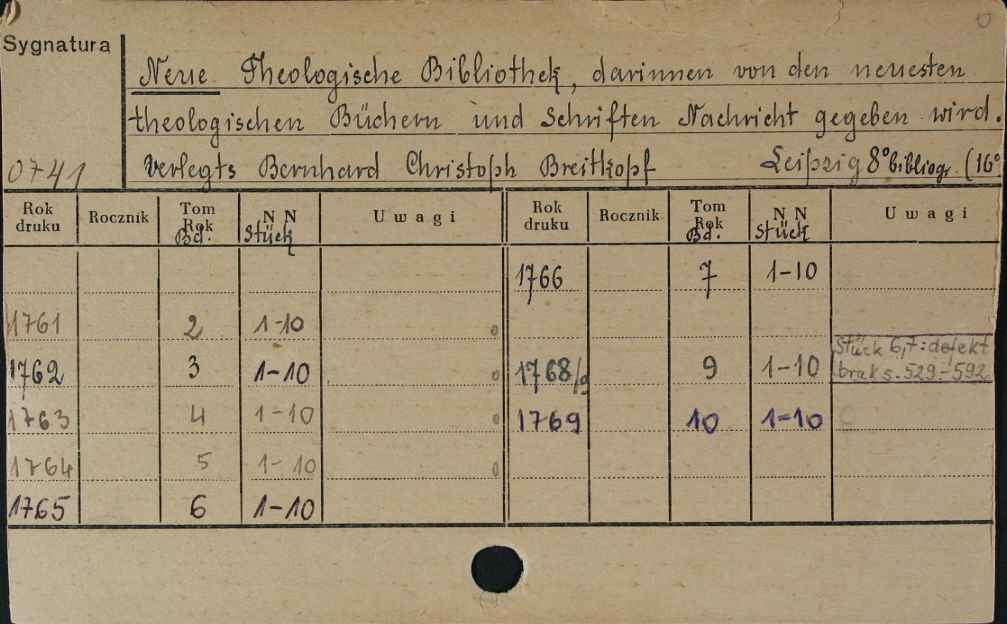 Sygnatura
Neue Theologische Bibliothek, darinnen von den neuesten
theologischen Büchern und Schriften Nachricht gegeben wird.
0741 verlegts Bernhard Christoph Breitkopf Leipzig 8° bibliogr. (16°
Rok druku Rocznik Tom Rok Bd. N N Stück Uwagi Rok druku Rocznik Tom Rok Bd. N N Stück Uwagi
1766 7 1-10
1761 2 1-10
1762 3 1-10 1768/9 9 1-10 Stück 6,7: defekt
brak s. 529-592
1763 4 1-10 1769 10 1-10
1764 5 1-10
1765 6 1-10